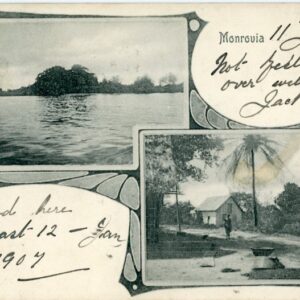 Monrovia 11
Not feel
over we
Jac
d here
ast 12 - Jan
907